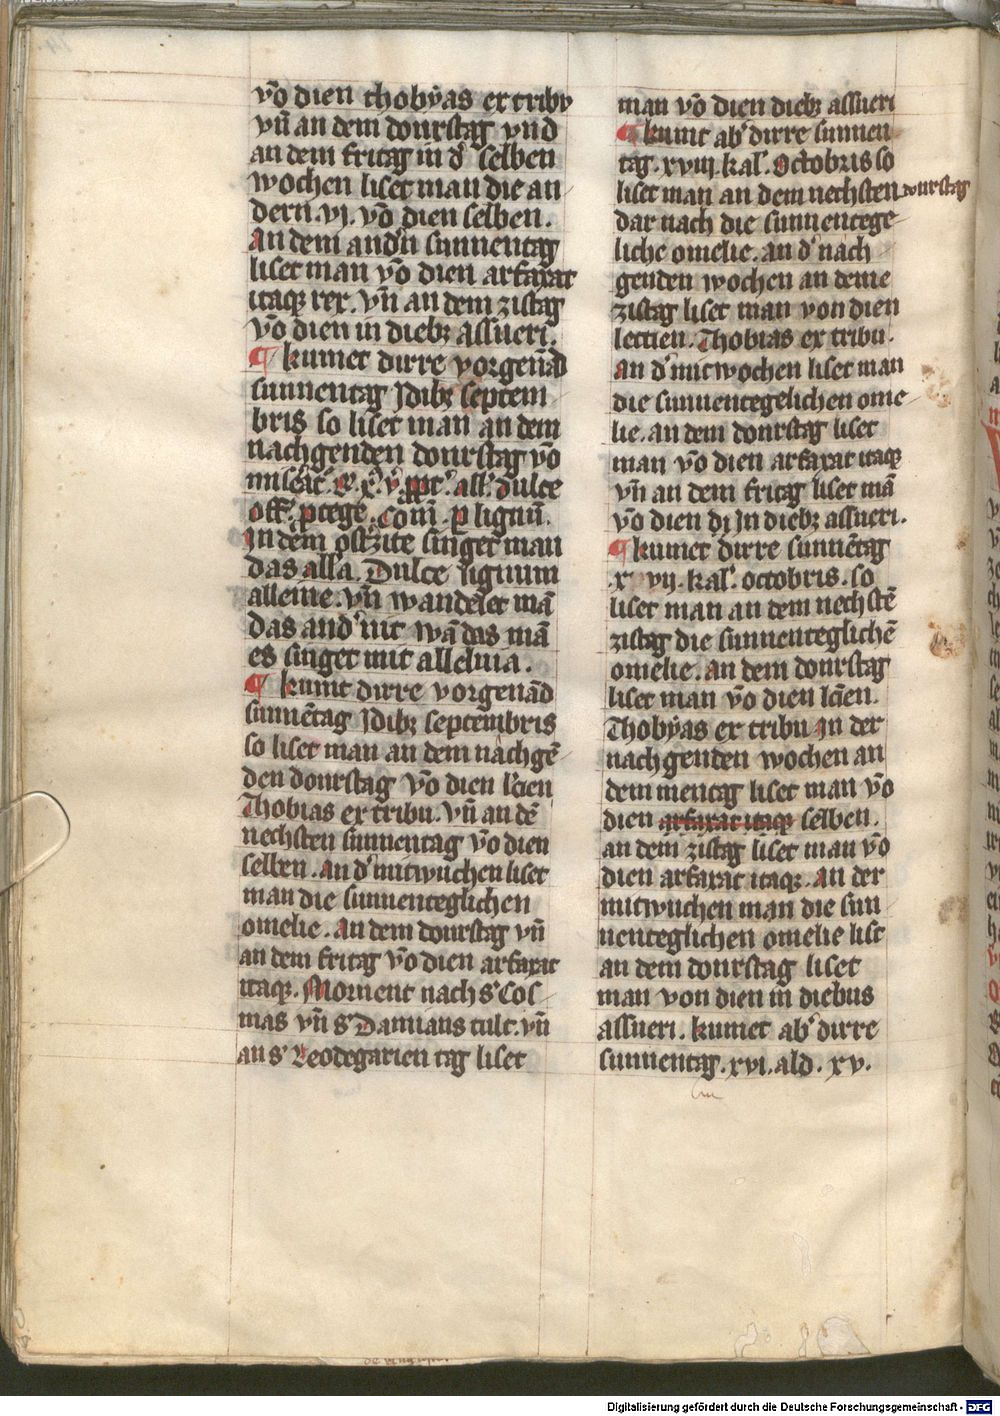 vō dien thobẏas ex tribu
vn̄ an dem dourstag vnd
an dem fritag in dˢ selben
wochen liset man die an
dern .vj. vō dien selben.
An dem andˢn sunnentag
liset man vō dien arfaxat
itaqꝫ rex. vn̄ an dem zistag
vō dien in diebꝫ assueri.
¶ kumet dirre vorgenād
sunnentag Jdibꝫ septem
bris so liset man an dem
nachgenden dourstag vō
all. dulce
off. ꝓtege. Com̄. ꝑ lignū.
In dem osterzite singet man
das alla. Dulce lignum
alleine. vn̄ wandelet mā
das andˢ nit wā das mā
es singet mit alleluia.
¶ kumt dirre vorgenād
sunnētag Jdibꝫ septembris
so liset man an dem nachgē
den dourstag vō dien lc̄ien
Thobias ex tribu. vn̄ an dē
nechsten sunnentag vō dien
selben. An dˢ mitwuchen liset
man die sunnenteglichen
omelie. An dem dourstag vn̄
an dem fritag vō dien arfaxat
itaqꝫ. Mornent nach sˢ Cos
mas vn̄ sˢ Damians tult. vn̄
an sˢ Leodegarien tag liset
man vō dien diebꝫ assueri
¶ kumt abˢ dirre sunnen
tag .xviij. kal. Octobris so
liset man an dem nechsten dourstag
dar nach die sunnentege
liche omelie. an dˢ nach
genden wochen an deme
zistag liset man von dien
lectien. Thobias ex tribu.
An dˢ mitwochen liset man
die sunnentegelichen ome
lie. an dem dourstag liset
man vō dien arfaxat itaqꝫ
vn̄ an dem fritag liset mā
vō dien dj In diebꝫ assueri.
¶ kumet dirre sunnētag
xvij. kal. octobris. so
liset man an dem nechstē
zistag die sunnenteglichē
omelie. an dem dourstag
liset man vō dien lc̄ien.
Thobẏas ex tribu In der
nachgenden wochen an
dem mentag liset man vō
dien arfaxat itaqꝫ selben.
an dem zistag liset man vō
dien arfaxat itaqꝫ. An der
mitwuchen man die sun
nenteglichen omelie list
an dem dourstag liset
man von dien in diebus
assueri. kumet abˢ dirre
sunnentag .xvi. ald. xv.
Digitalisierung gefördert durch die Deutsche Forschungsgemeinschaft - DFG